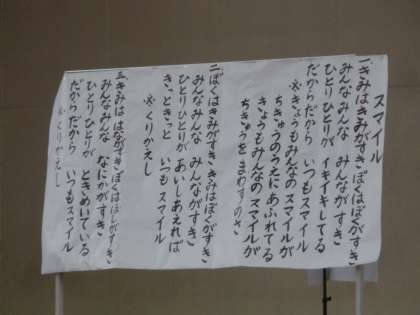 スマイル
一、きみはきみがすき ぼくはぼくがすき
みんなみんな みんながすき
ひとりひとりが イキイキしてる
だからだから いつもスマイル
※きょうもみんなの スマイルが
ちきゅうのうえに あふれてる
きょうもみんなの スマイルが
ちきゅうを まわすのさ
二、ぼくはきみがすき きみはぼくがすき
みんなみんな みんながすき
ひとりひとりが あいしあえれば
きっときっと いつもスマイル
※くりかえし
三、きみは はながすき ぼくはほしがすき
みんなみんな なにかがすき
ひとりひとりが ときめいている
だからだから いつもスマイル
※くりかえし